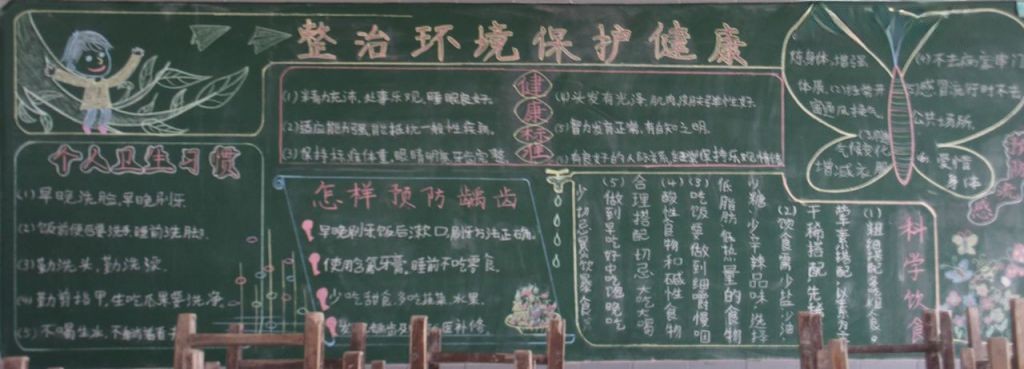 整治环境保护健康
个人卫生习惯
(1)早晚洗脸,早晚刷牙.
(2)饭前便后要洗手睡前洗脚.
(3)勤洗头,勤洗澡.
(4)勤剪指甲,生吃瓜果要洗净.
(5)不喝生水,不
健康标准
(1)精力充沛,处事乐观,睡眠良好.
(2)适应能力强,能抵抗一般性疾病.
(3)保持标准体重,眼睛明亮牙齿完整.
(4)头发有光泽,肌肉,皮肤弹性好.
(5)智力发育正常,有自知之明.
(6)有良好的人际关系,能保持乐观情绪
怎样预防龋齿
早晚刷牙饭后漱口,刷牙方法正确.
使用含氟牙膏,睡前不吃零食.
少吃甜食,多吃蔬菜,水果.
医补修.
科学饮食
(1)粗细搭配多
荤素搭配,以素为主
干稀搭配,先稀
(2)饮食需少盐,少油,
少糖,少辛辣品味,选择
低脂肪,低热量的食物
(3)吃饭要做到细嚼慢咽
(4)酸性食物和碱性食物
合理搭配,切忌大吃大喝
(5)做到早吃好中吃饱晚吃
少,
炼身体,增强
体质.(2)经常开
窗通风换气.
(3)随
气候变化
增减衣
(4)不去病室串门
(5)感冒流行时不去
公共场所.
爱惜
身体